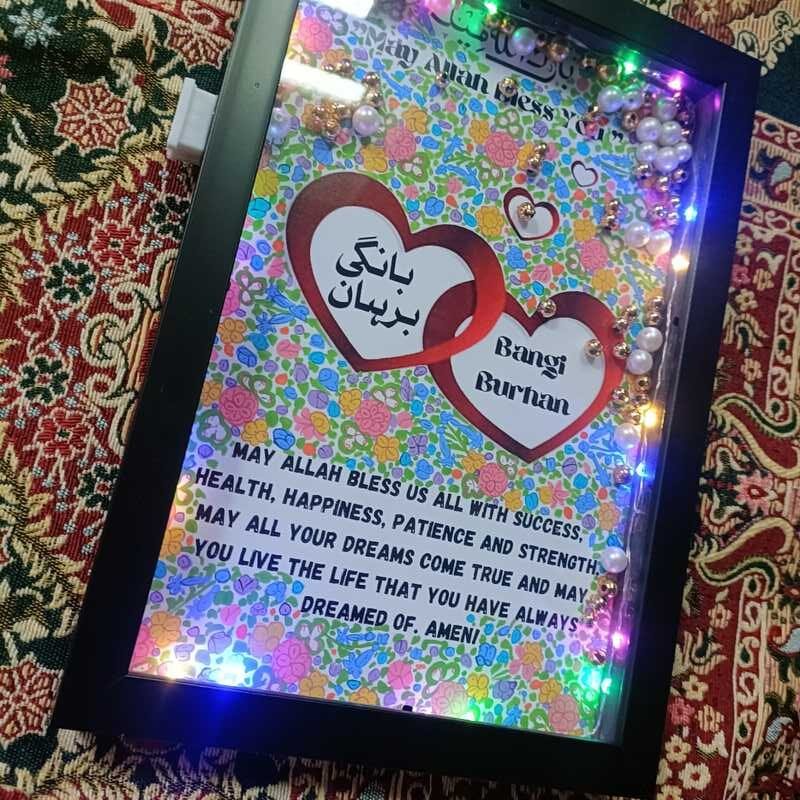 "May Allah Bless You"
بانگی
برہان
Bangi
Burhan
MAY ALLAH BLESS US ALL WITH SUCCESS,
HEALTH, HAPPINESS, PATIENCE AND STRENGTH.
MAY ALL YOUR DREAMS COME TRUE AND MAY
YOU LIVE THE LIFE THAT YOU HAVE ALWAYS
DREAMED OF. AMEN!